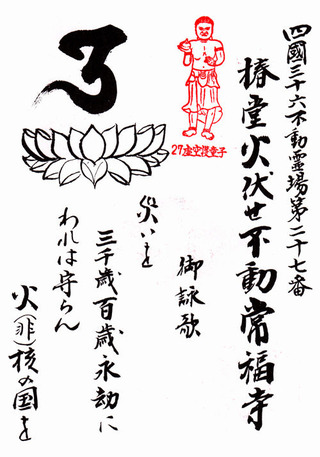 四國三十六不動霊場第二十七番
椿堂火伏せ不動常福寺
27虚空護童子
御詠歌
災いを
三千歳百歳永劫に
われは守らん
火(非)核の国を